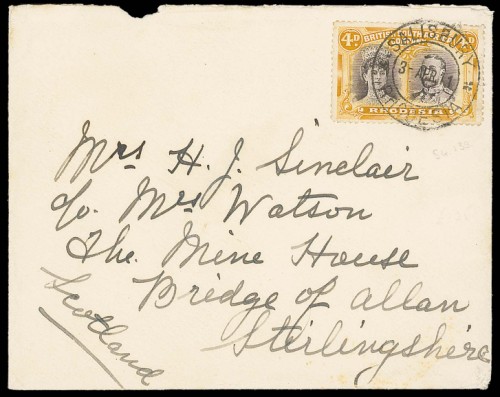 4D BRITISH SOUTH AFRICA D
COMPANY
RHODESIA
SALISBURY
RHODESIA
Mrs H. J. Sinclair
c/o. Mrs Watson
The Mine House
Bridge of Allan
Stirlingshire
Scotland